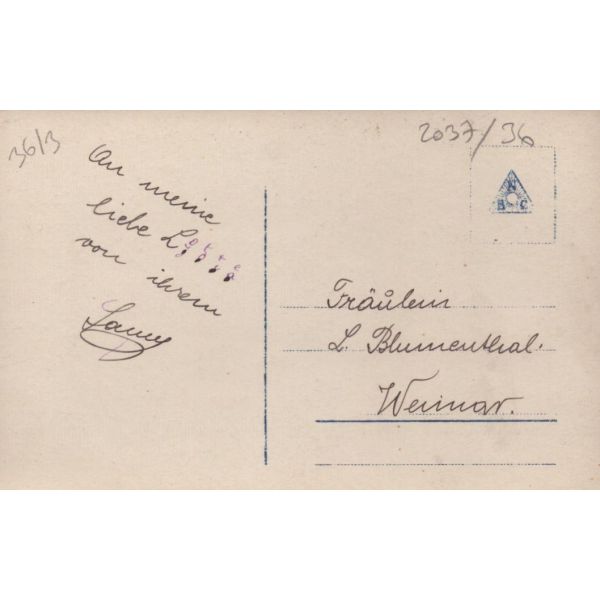 36/3
2037/36
An meine
liebe L
von ihrem
N
B C
Fräulein
L Blumenthal.
Weimar.